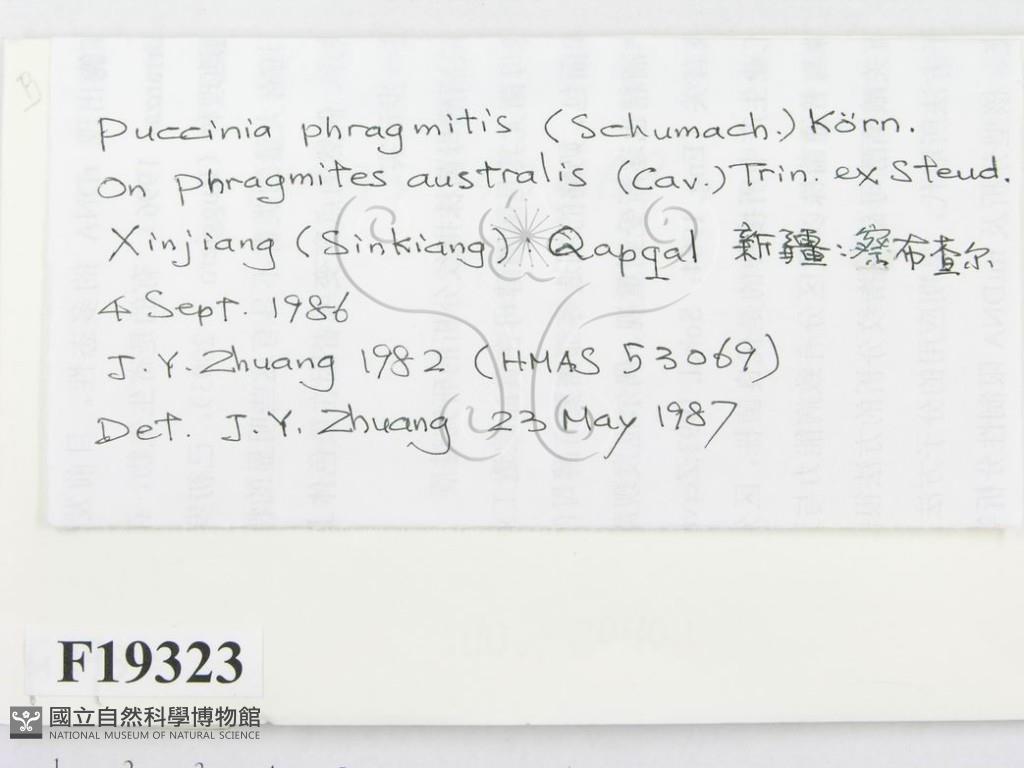 Puccinia phragmitis (Schumach.) Körn.
On Phragmites australis (Cav.) Trin. ex Steud.
Xinjiang (Sinkiang): Qapqal 新疆:察布查尔
4 Sept. 1986
J.Y. Zhuang 1982 (HMAS 53069)
Det. J.Y. Zhuang 23 May 1987
F19323
國立自然科學博物館
NATIONAL MUSEUM OF NATURAL SCIENCE